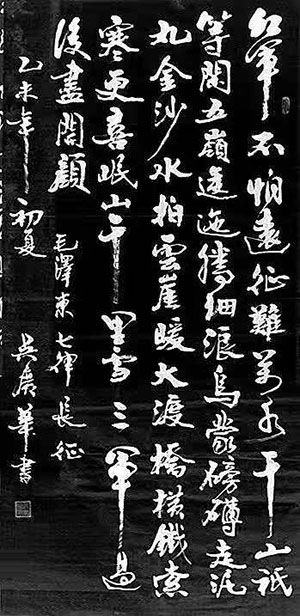 紅軍不怕遠征難萬水千山祇
等閑五嶺逶迤騰細浪烏蒙磅礴走泥
丸金沙水拍雲崖暖大渡橋橫鐵索
寒更喜岷山千里雪三軍過
後盡開顏
毛澤東七律長征
乙未年初夏 華書